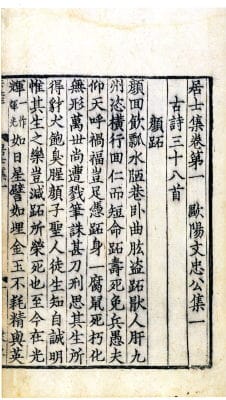 居士集卷第一　歐陽文忠公集一
古詩三十八首
顏跖
顏回飲瓢水陋巷卧曲肱盜跖猒人肝九
州恣橫行回仁而短命跖壽死免兵愚夫
仰天呼禍福豈足憑跖身一腐鼠死朽化
無形萬世尚遭戮筆誅甚刀刑思其生所
得豺犬飽臭腥顏子聖人徒生知自誠明
惟其生之樂豈減跖所榮死也至今在光
輝一作輝光如日星譬如埋金玉不耗精與英